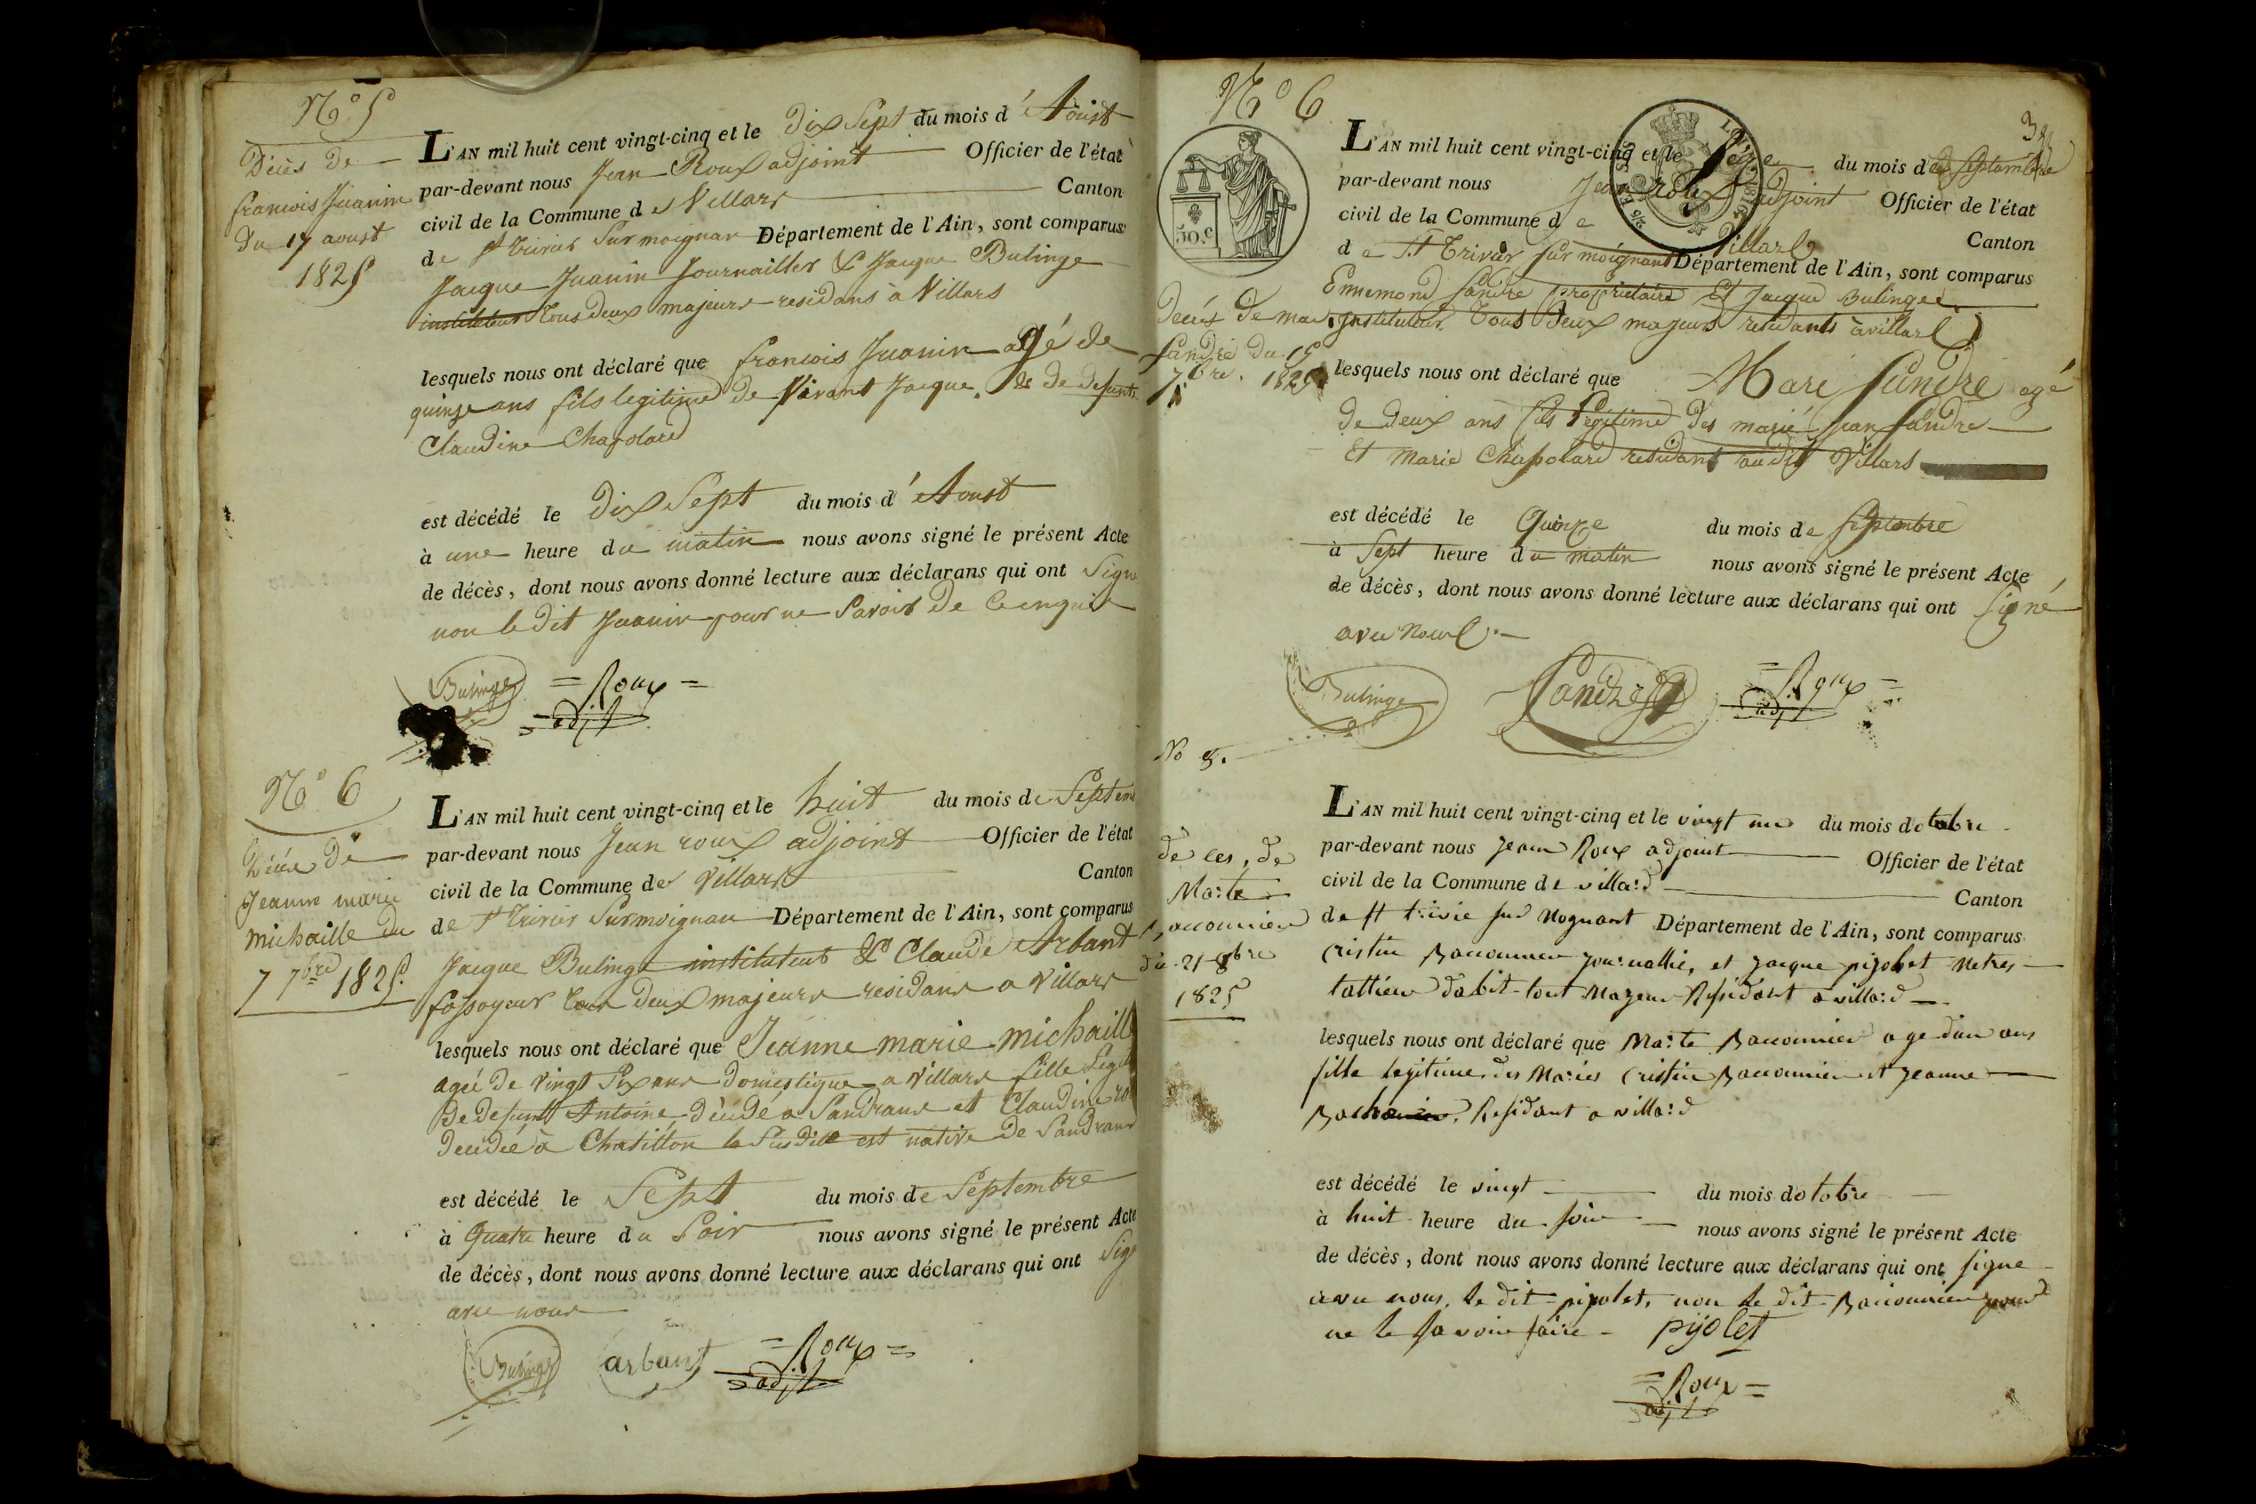 N.o 5
Décès de
francois Juanin
Du 17 aoust
1825
L'AN mil huit cent vingt-cinq et le dix Sept du mois d'Aoust
par-devant nous Jean Roux adjoint Officier de l'état
civil de la Commune de Villars Canton
de St trivier Sur moignan Département de l'Ain, sont comparus
Jacque Juanin Journaillier & Jacque Bulinge
instituteur tous deux majeurs residans a Villars
lesquels nous ont déclaré que francois Juanin agé de
quinze ans fils legitime de Vivant Jacque, & de defunte
Claudine Chapolard
est décédé le dix Sept du mois d'Aoust
à une heure du matin nous avons signé le présent Acte
de décès, dont nous avons donné lecture aux déclarans qui ont Signé
non le dit Juanin pour ne Savoir de ce enquis
Bulinge = Roux =
= adjt
N.o 6
Décés de
Jeanne marie
michaille du
7 7bre 1825.
L'AN mil huit cent vingt-cinq et le huit du mois de Septem
par-devant nous Jean roux adjoint Officier de l'état
civil de la Commune de Villars Canton
de St trivier Sur moignan Département de l'Ain, sont comparus
Jacque Bulinge instituteur & Claude Arbant
fossoyeur tous deux majeurs residans a Villars
lesquels nous ont déclaré que Jeanne marie michaill
ageé de vingt Six ans domestique a Villars fille Legit
de defunt Antoine décédé a Sandrans et Claudine
décedée à Chatillon la Susdite est native de Sandrans
est décédé le Sept du mois de Septembre
à Quatre heure du Soir nous avons signé le présent Acte
de décès, dont nous avons donné lecture aux déclarans qui ont Sign
avec nous
Bulinge arbant = Roux =
= adjt
N.o 6
50.c
Decés de marie
Sandre du 15
7bre. 1825
L'AN mil huit cent vingt-cinq et le Seize du mois de Septembre
par-devant nous Jean roux adjoint Officier de l'état
civil de la Commune de Villars Canton
de St Trivier sur moignant Département de l'Ain, sont comparus
Ennemond Sandre proprietaire Et Jacque Bulinge
instituteur Tous Deux majeurs residants a villars
lesquels nous ont déclaré que Marie Sandre agé
de deux ans fils legitime des marié jean Sandre
Et Marie Chapolard residant audit Villars
est décédé le Quinze du mois de Septembre
à Sept heure du matin nous avons signé le présent Acte
de décès, dont nous avons donné lecture aux déclarans qui ont Signé
avec nous
Bulinge Sandre = Roux =
adjt
No 8.
de ces, de
Marte
Baconnier
du 21 8bre
1825
L'AN mil huit cent vingt-cinq et le vingt un du mois dotobre
par-devant nous Jean Roux adjoint Officier de l'état
civil de la Commune de villard Canton
de st trivie sur Mognant Département de l'Ain, sont comparus
Cristin Baconnier journallié, et jacque pijolet
dabit tout Majeur Residant a villard
lesquels nous ont déclaré que Marte Baconnier age dun ans
fille legitime des Maries Cristin Baconnier et jeanne
Residant a villard
est décédé le vingt du mois dotobre
à huit heure du soir nous avons signé le présent Acte
de décès, dont nous avons donné lecture aux déclarans qui ont signe
avec nous, le dit pijolet, non le dit Baconnier pour
ne le savoir faire - pijolet
= Roux =
adjt